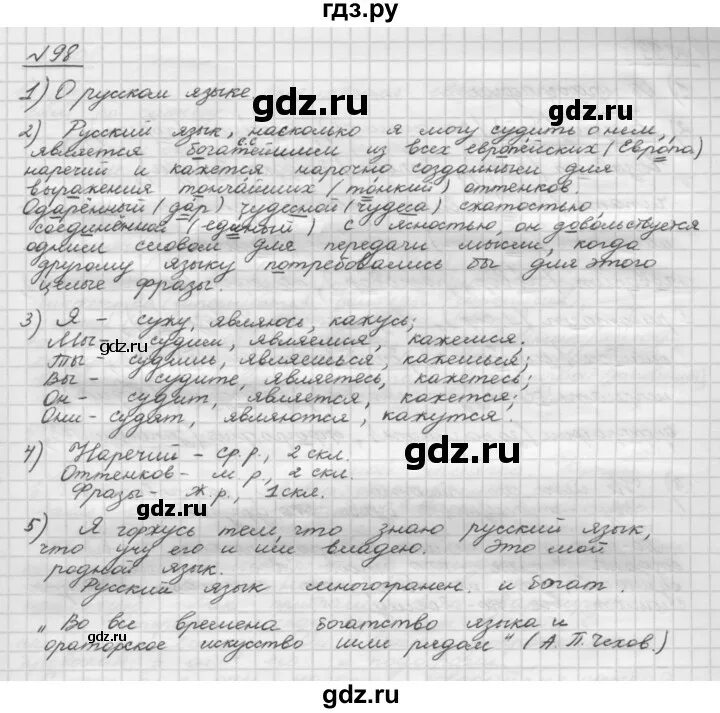 гдз.ру
№98
1) О русском языке
2) Русский язык, насколько я могу судить о нём,
является богатейшим из всех европейских (Европа)
наречий и кажется нарочно созданным для
выражения тончайших (тонкий) оттенков.
Одарённый (дар) чудесной (чудеса) сжатостью,
соединённой (единый) с ясностью, он довольствуется
одним словом для передачи мысли, когда
другому языку потребовались бы для этого
целые фразы.
3) Я - сужу, являюсь, кажусь;
Мы - судим, являемся, кажемся;
Ты - судишь, являешься, кажешься;
Вы - судите, являетесь, кажетесь;
Он - судит, является, кажется;
Они - судят, являются, кажутся.
4) Наречий - ср.р., 2 скл.
Оттенков - м.р., 2 скл.
Фразы - ж.р., 1 скл.
5) Я горжусь тем, что знаю русский язык,
что учу его и им владею. Это мой
родной язык.
Русский язык многогранен и богат.
„Во все времена богатство языка и
ораторское искусство шли рядом“ (А.П.Чехов.)
gdz.ru
gdz.ru
gdz.ru
gdz.ru
gdz.ru
gdz.ru
gdz.ru
gdz.ru